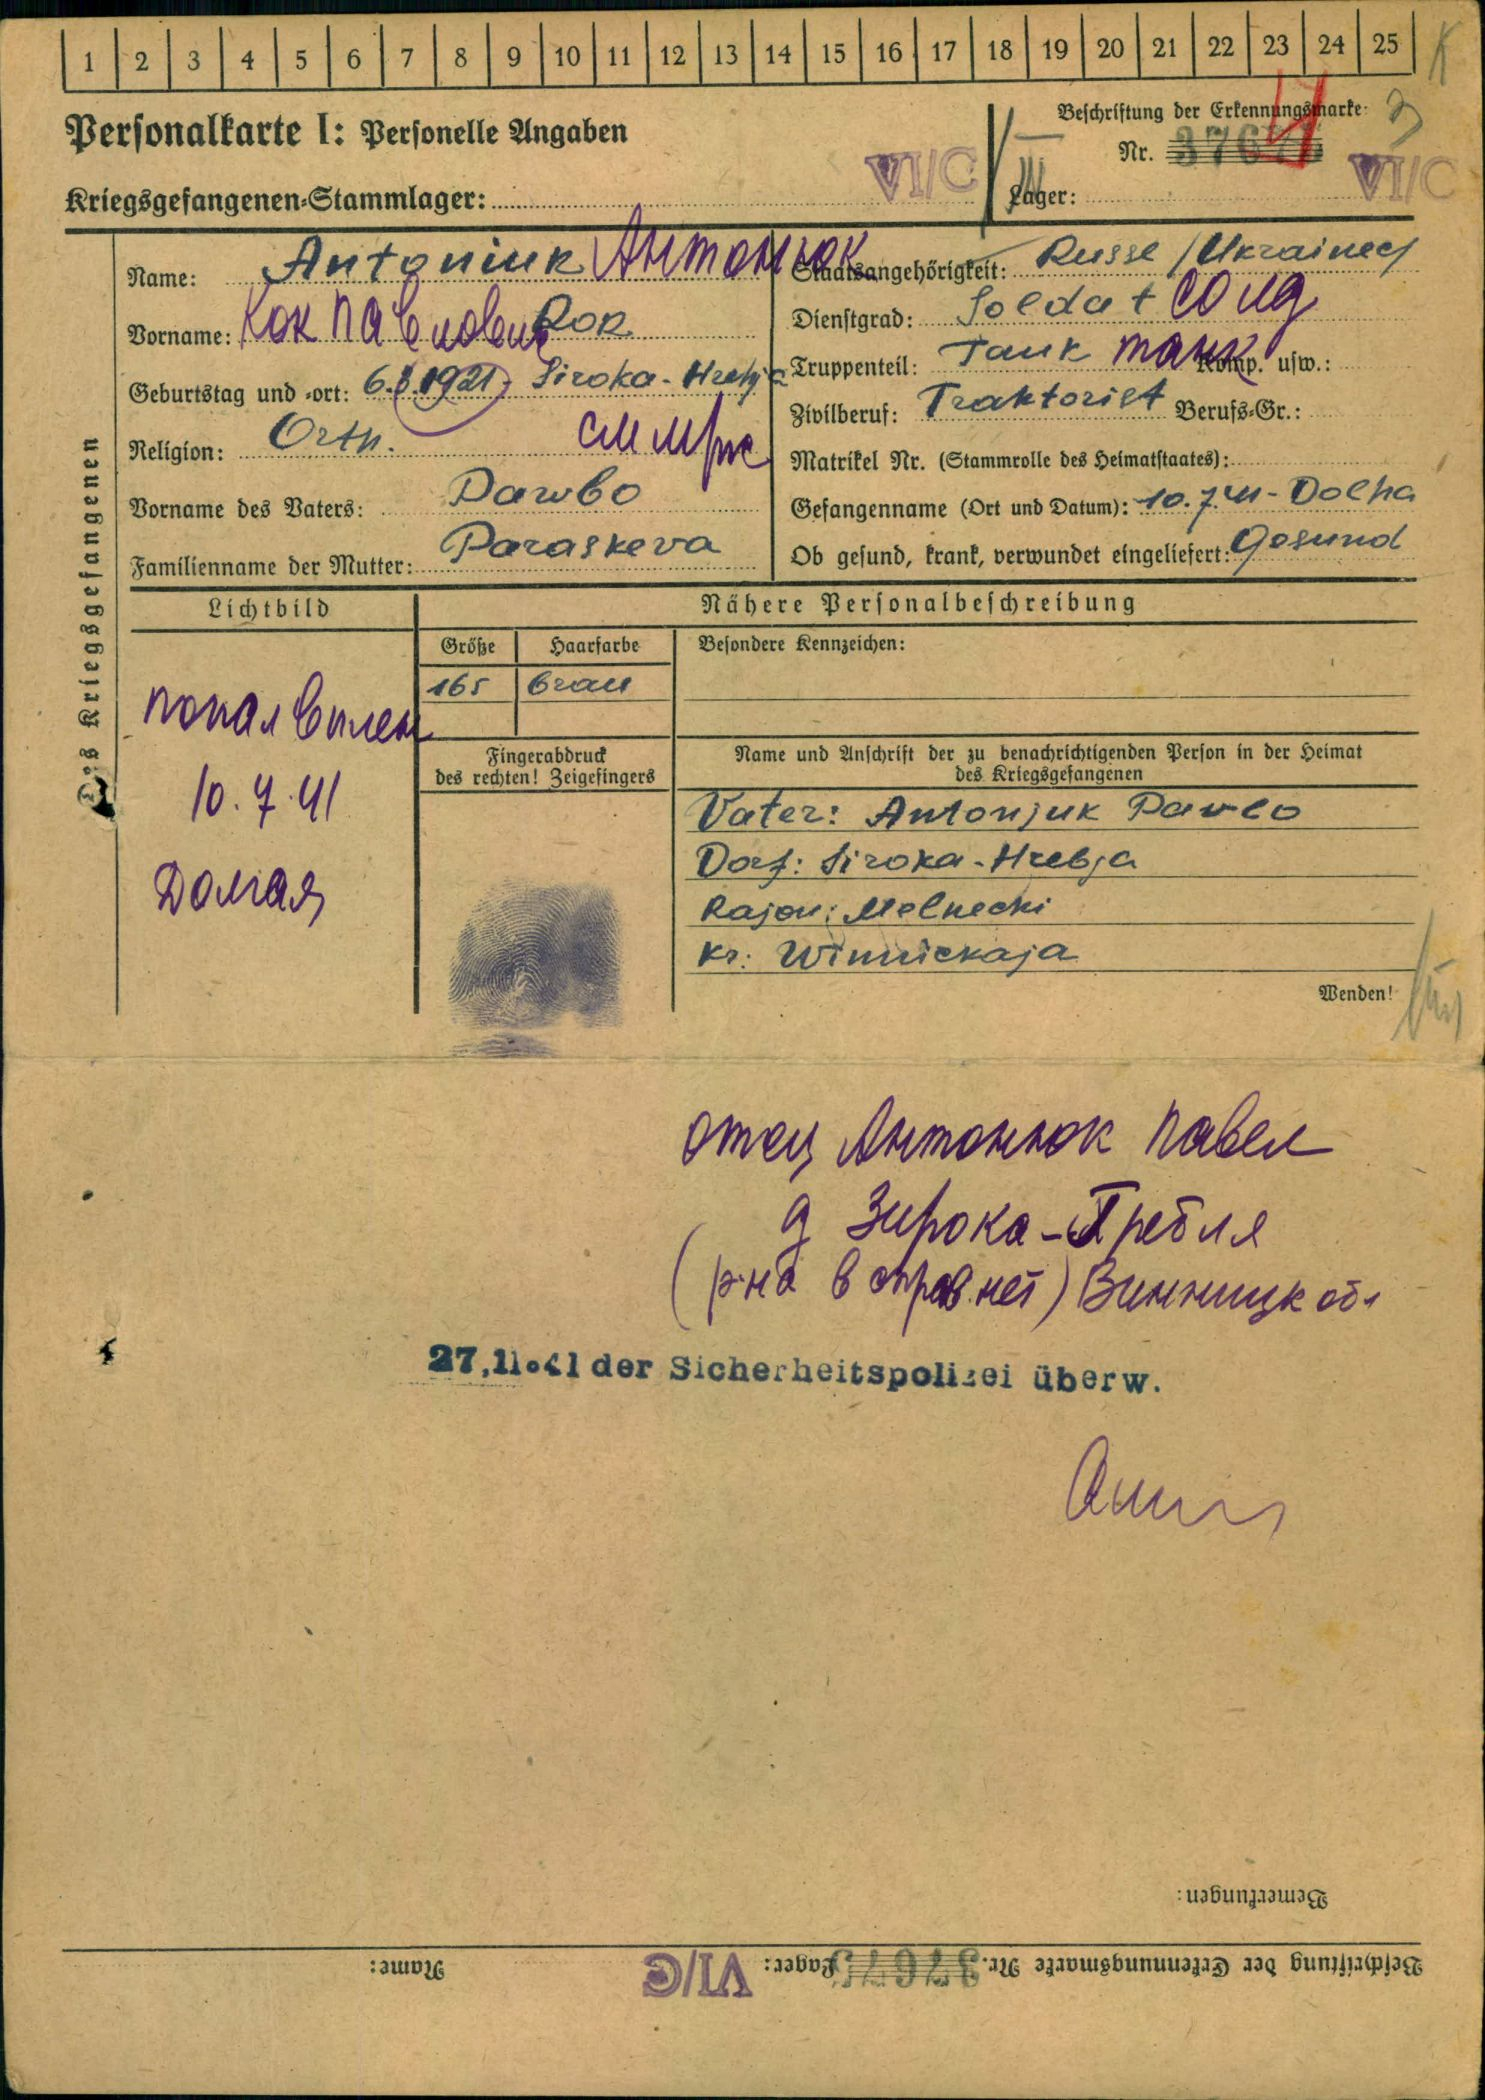 1 2 3 4 5 6 7 8 9 10 11 12 13 14 15 16 17 18 19 20 21 22 23 24 25
K
Personalkarte I: Personelle Angaben
Kriegsgefangenen-Stammlager: VI/C
Beschriftung der Erkennungsmarke
Nr. 3767
Lager: VI/C
Des Kriegsgefangenen
Name: Antoniuk Антонюк
Vorname: Кок Павлович Kok
Geburtstag und -ort: 6.8.1921 Siroka-Hrebja
Religion: Orth.
Vorname des Vaters: Pawlo
Familienname der Mutter: Paraskeva
Staatsangehörigkeit: Russe / Ukrainec
Dienstgrad: Soldat солд
Truppenteil: Tank танк Komp. usw.:
Zivilberuf: Traktorist Berufs-Gr.:
Matrikel Nr. (Stammrolle des Heimatstaates):
Gefangenname (Ort und Datum): 10.7.41 - Dolha
Ob gesund, krank, verwundet eingeliefert: Gesund
Lichtbild
попал в плен
10.7.41
Долгая
Nähere Personalbeschreibung
Größe Haarfarbe
165 braun
Besondere Kennzeichen:
Fingerabdruck
des rechten! Zeigefingers
Name und Anschrift der zu benachrichtigenden Person in der Heimat
des Kriegsgefangenen
Vater: Antonjuk Pawlo
Dorf: Siroka-Hrebja
Rajon: Melnecki
Kr: Winnickaja
Wenden!
отец Антонюк Павел
д Зирока-Гребля
(р-на в справ. нет) Винницк обл
27.11.41 der Sicherheitspolizei überw.
Bemerkungen:
Beschriftung der Erkennungsmarke Nr. 3767 Lager: VI/C Name: